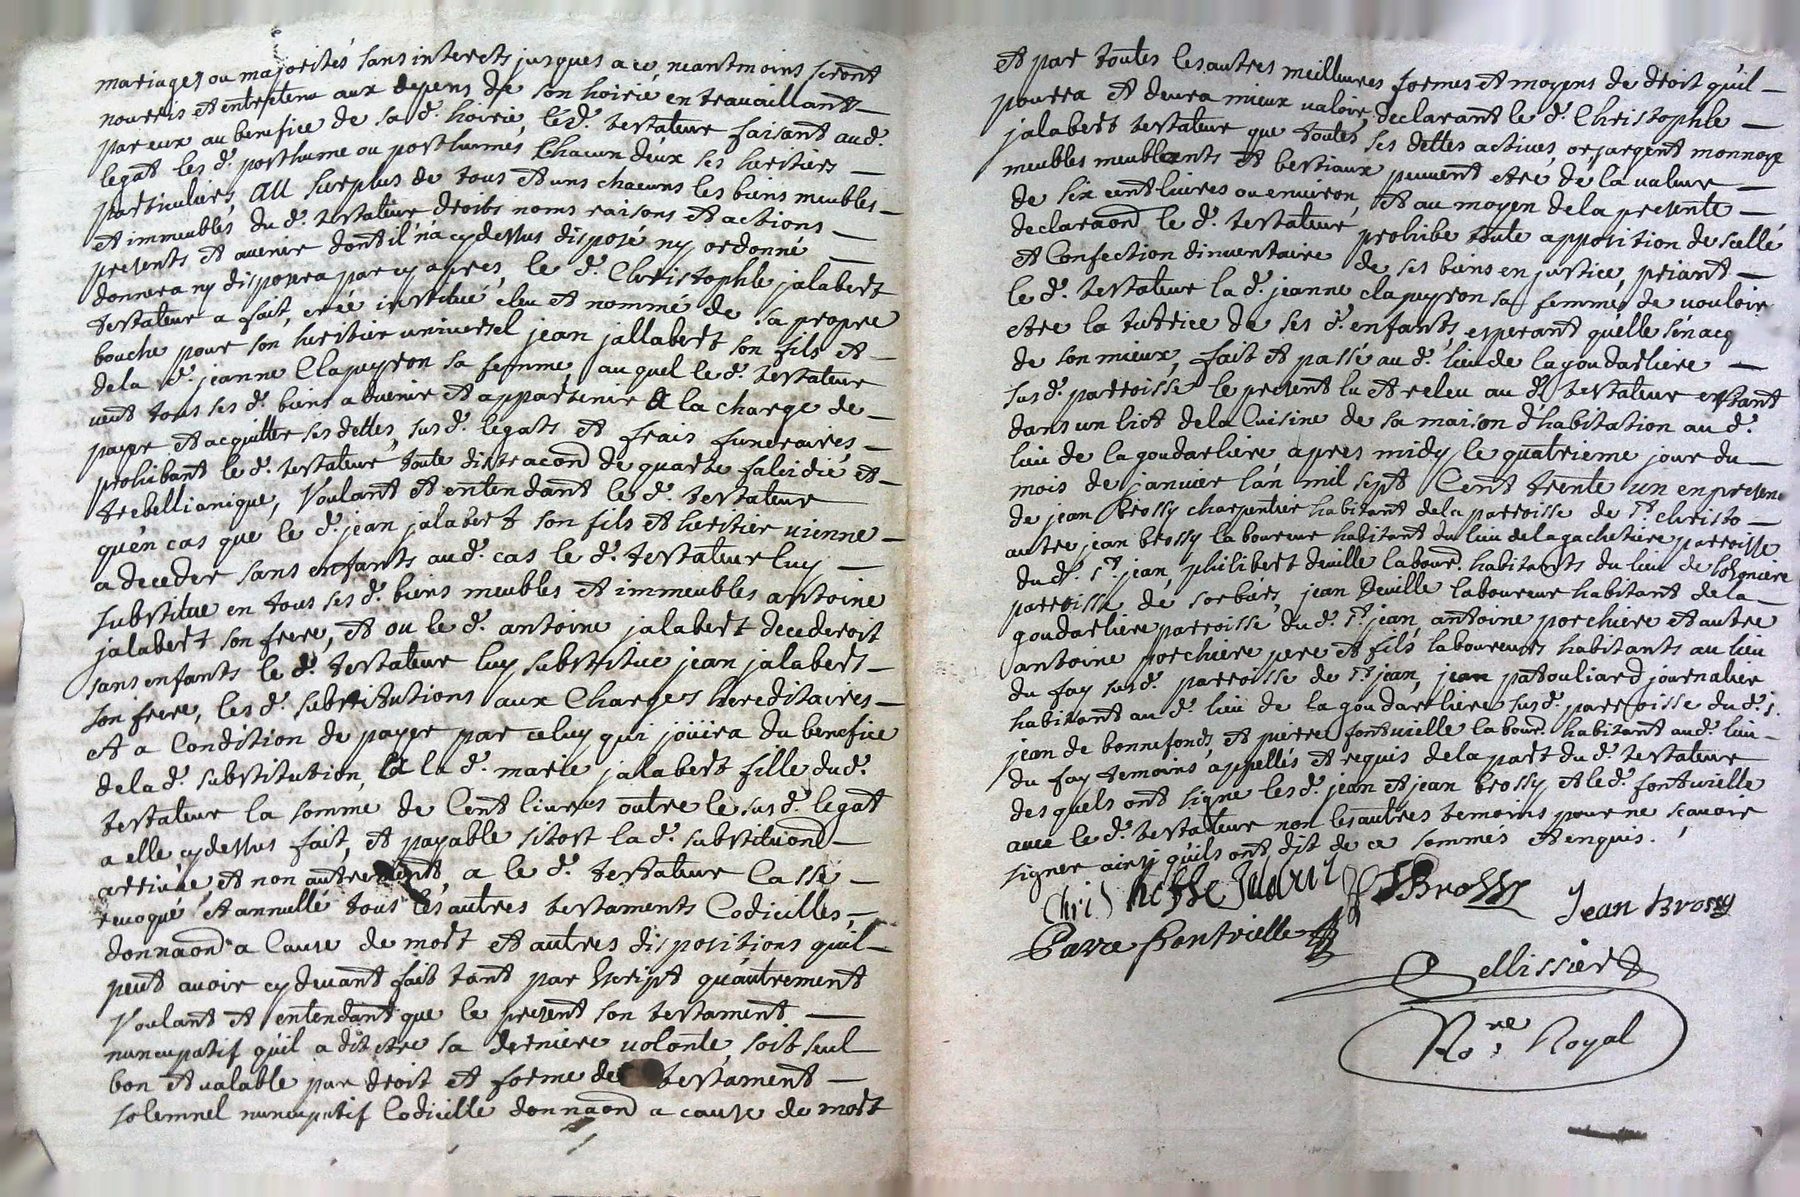 mariages ou majorités sans interets jusques a ce, neantmoins seront
nourris et entretenu aux depens de son hoirie en travaillants
par eux au benefice de sa d. hoirie, led. testateur faisant aud.
legat les d. posthume ou posthumes chacun deux ses heritiers
particuliers, au surplus de tous et uns chacuns les biens meubles
et immeubles du d. testateur droits noms raisons et actions
presents et avenir dont il n'a cy dessus disposé ny ordonné
donnera ny disposera par cy apres, le d. Christophle jalabert
testateur a fait, créé institué eleu et nommé de sa propre
bouche pour son heritier universel jean jallabert son fils et
de la d. jeanne Clapeyron sa femme, au quel le d. testateur
veut tous ses d. biens avenir et appartenir a la charge de
payer et acquitter ses dettes, sus d. legats et frais funeraires,
prohibant le d. testateur toute distracaon de quarte falcidie et
trebellianique, Voulant et entendant le d. testateur
qu'en cas que le d. jean jalabert son fils et heritier vienne
a deceder sans enfants aud. cas le d. testateur luy
substitue en tous ses d. biens meubles et immeubles antoine
jalabert son frere, et ou le d. antoine jalabert decederoit
sans enfants le d. testateur luy substitue jean jalabert
son frere, les d. substitutions aux Charges hereditaires
et a Condition de payer par celuy qui joüira du benefice
de la d. substitution, a la d. marie jalabert fille dud.
testateur la somme de Cent livres outre le sus d. legat
a elle cy dessus fait, et payable sitost la d. substituond
arrivée, et non autrement, a le d. testateur Cassé
revoqué et annullé tous les autres testaments Codicilles,
donnaond a Cause de mort et autres dispositions qu'il
peut avoir cy devant fait tant par Escript qu'autrement
Voulant et entendant que le present son testament
nuncupatif qu'il a dit etre sa derniere volonte, soit seul
bon et valable par droit et forme de testament
solemnel nuncupatif Codicille donnaond a cause de mort
et par toutes les autres meilleures formes et moyens de droit qu'il
pourra et devra mieux valoir, declarant le d. Christophle
jalabert testateur que toutes ses dettes actives, or, argent monnoye
meubles meublants et bestiaux peuvent etre de la valeur
de six cent livres ou environ, et au moyen de la presente
declaraond le d. testateur prohibe toute apposition de scellé
et Confection dinventaire de ses biens en justice, priant
le d. testateur la d. jeanne clapeyron sa femme, de vouloir
etre la tutrice de ses d. enfants, esperant qu'elle s'en acq
de son mieux, fait et passé au d. lieu de la goudarliere
sus d. parroisse le present lu et releu au d. testateur estant
dans un lict de la Cuisine de sa maison d'habitation au d.
lieu de la goudarliere apres midy le quatrieme jour du
mois de janvier l'an mil sept Cent trente un en presence
de jean Brossy charpentier habitant de la parroisse de st. christo
autre jean brossy laboureur habitant du lieu de la gachetiere parroisse
du d. st. jean, philibert deville labour. habitants du lieu de
parroisse de sorbiers, jean Deville laboureur habitant de la
goudarliere parroisse du d. st. jean, antoine porchiere et autre
antoine porchiere pere et fils laboureurs habitants au lieu
du fay sus d. parroisse de st. jean, jean patouliard journalier
habitant au d. lieu de la goudarliere sus d. parroisse du d. s.
jean de bonnefond, et pierre fontvieille labour. habitant aud. lieu
du fay temoins appellés et requis de la part du d. testateur
des quels ont signé les d. jean et jean brossy et le d. fontvieille
avec le d. testateur non les autres temoins pour ne scavoir
signer ainsy qu'ils ont dit de ce sommés et enquis.
J Brossy Jean Brossy
Fontvielle
Pellissier
No.re Royal